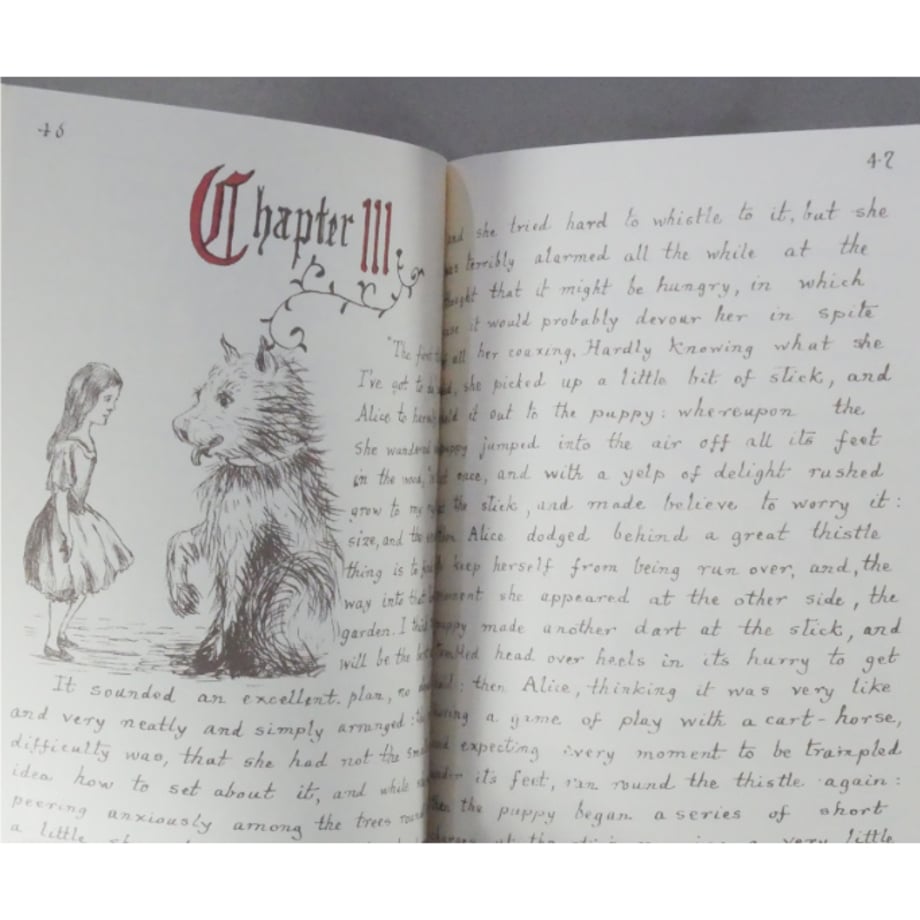 46
Chapter III
"The first
I've got to
Alice to
she wandered
in the wood, "is
grow to my
size, and the
thing is to
way into that
garden. I
will be the
It sounded an excellent plan, no
and very neatly and simply arranged:
difficulty was, that she had not the
idea how to set about it, and while
peering anxiously among the trees round
a little
47
and she tried hard to whistle to it, but she
was terribly alarmed all the while at the
thought that it might be hungry, in which
case it would probably devour her in spite
all her coaxing. Hardly knowing what she
did, she picked up a little bit of stick, and
held it out to the puppy: whereupon the
puppy jumped into the air off all its feet
at once, and with a yelp of delight rushed
at the stick, and made believe to worry it:
then Alice dodged behind a great thistle
to keep herself from being run over, and, the
moment she appeared at the other side, the
puppy made another dart at the stick, and
tumbled head over heels in its hurry to get
hold: then Alice, thinking it was very like
having a game of play with a cart-horse,
and expecting every moment to be trampled
under it's feet, ran round the thistle again:
then the puppy began a series of short
at the a very little